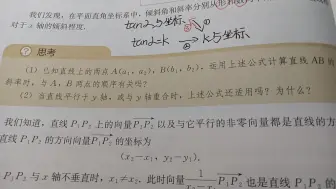 我们发现，在平面直角坐标系中，倾斜角和斜率分别从形
对于 x 轴的倾斜程度.
tan2→坐标
tan2=k → k与坐标
思考
(1) 已知直线上的两点 A(a₁, a₂), B(b₁, b₂), 运用上述公式计算直线 AB 的
斜率时，与 A，B 两点的顺序有关吗？
(2) 当直线平行于 y 轴，或与 y 轴重合时，上述公式还适用吗？为什么？
我们知道，直线 P₁P₂ 上的向量 P₁P₂ 以及与它平行的非零向量都是直线的方
直线 P₁P₂ 的方向向量 P₁P₂ 的坐标为
(x₂−x₁, y₂−y₁),
P₁P₂ 与 x 轴不垂直时，x₁≠x₂. 此时向量 1 P₁P₂ 也是直线 P₁P₂